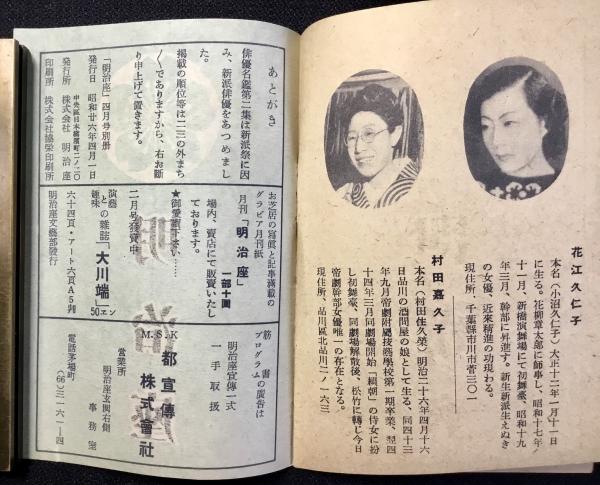 花江久仁子
本名(小沼久仁子)大正十二年一月十一日
に生る。花柳章太郎に師事し、昭和十七年
十一月、新橋演舞場にて初舞臺、昭和十九
年三月、幹部に昇進す。新生新派生えぬき
の女優、近來精進の功現わる。
現住所、千葉縣市川市菅三〇一
村田嘉久子
本名(村田住久榮)明治二十六年四月十六
日品川の酒問屋の娘として生る、同四十三
年九月帝劇附屬技藝學校第一期卒業、翌四
十四年三月同劇場開始「頼朝」の侍女に扮
し初舞臺、同劇場解散後、松竹に轉じ今日
帝劇幹部女優唯一の存在となる。
現住所、品川區北品川二ノ一六三
あとがき
俳優名鑑第二集は新派祭に因
み、新派俳優をあつめまし
た。
掲載の順位等は二三の外まち
〱でありますから、右お斷
り申上げて置きます。
「明治座」四月号別册
発行日 昭和廿六年四月一日
中央區日本橋濱町二ノ二〇
発行所 株式会社 明治座
印刷所 株式会社協栄印刷所
お芝居の寫眞と記事滿載の
グラビア月刊紙
月刊「明治座」
一部十圓
場内、賣店にて販賣いたし
ております。
★御愛讀下さい……
二月号発賣中
演藝と趣味の雜誌「大川端」50ヱン
六十四頁・アート六頁A5判
明治座文藝部發行
筋書プログラムの廣告は
明治座宣傳一式
一手取扱
M.S.K
都宣傳
株式會社
営業所
明治座玄関右側
事務室
電話茅場町
(66)三一六一―四
明治座